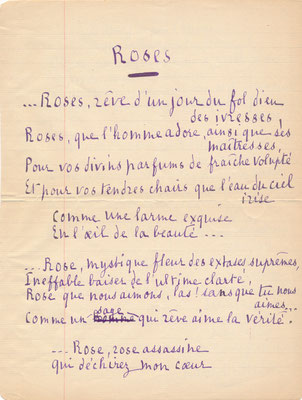 Roses
...Roses, rêve d'un jour du fol dieu
des ivresses,
Roses, que l'homme adore, ainsi que ses
maîtresses,
Pour vos divins parfums de fraîche volupté
Et pour vos tendres chairs que l'eau du ciel
irise
Comme une larme exquise
En l'œil de la beauté ...
... Rose, mystique fleur des extases suprêmes,
Ineffable baiser de l'ultime clarté,
Rose que nous aimons, las! sans que tu nous
aimes...
sage
Comme un qui rêve aime la vérité.
... Rose, rose assassine
qui déchirez mon cœur